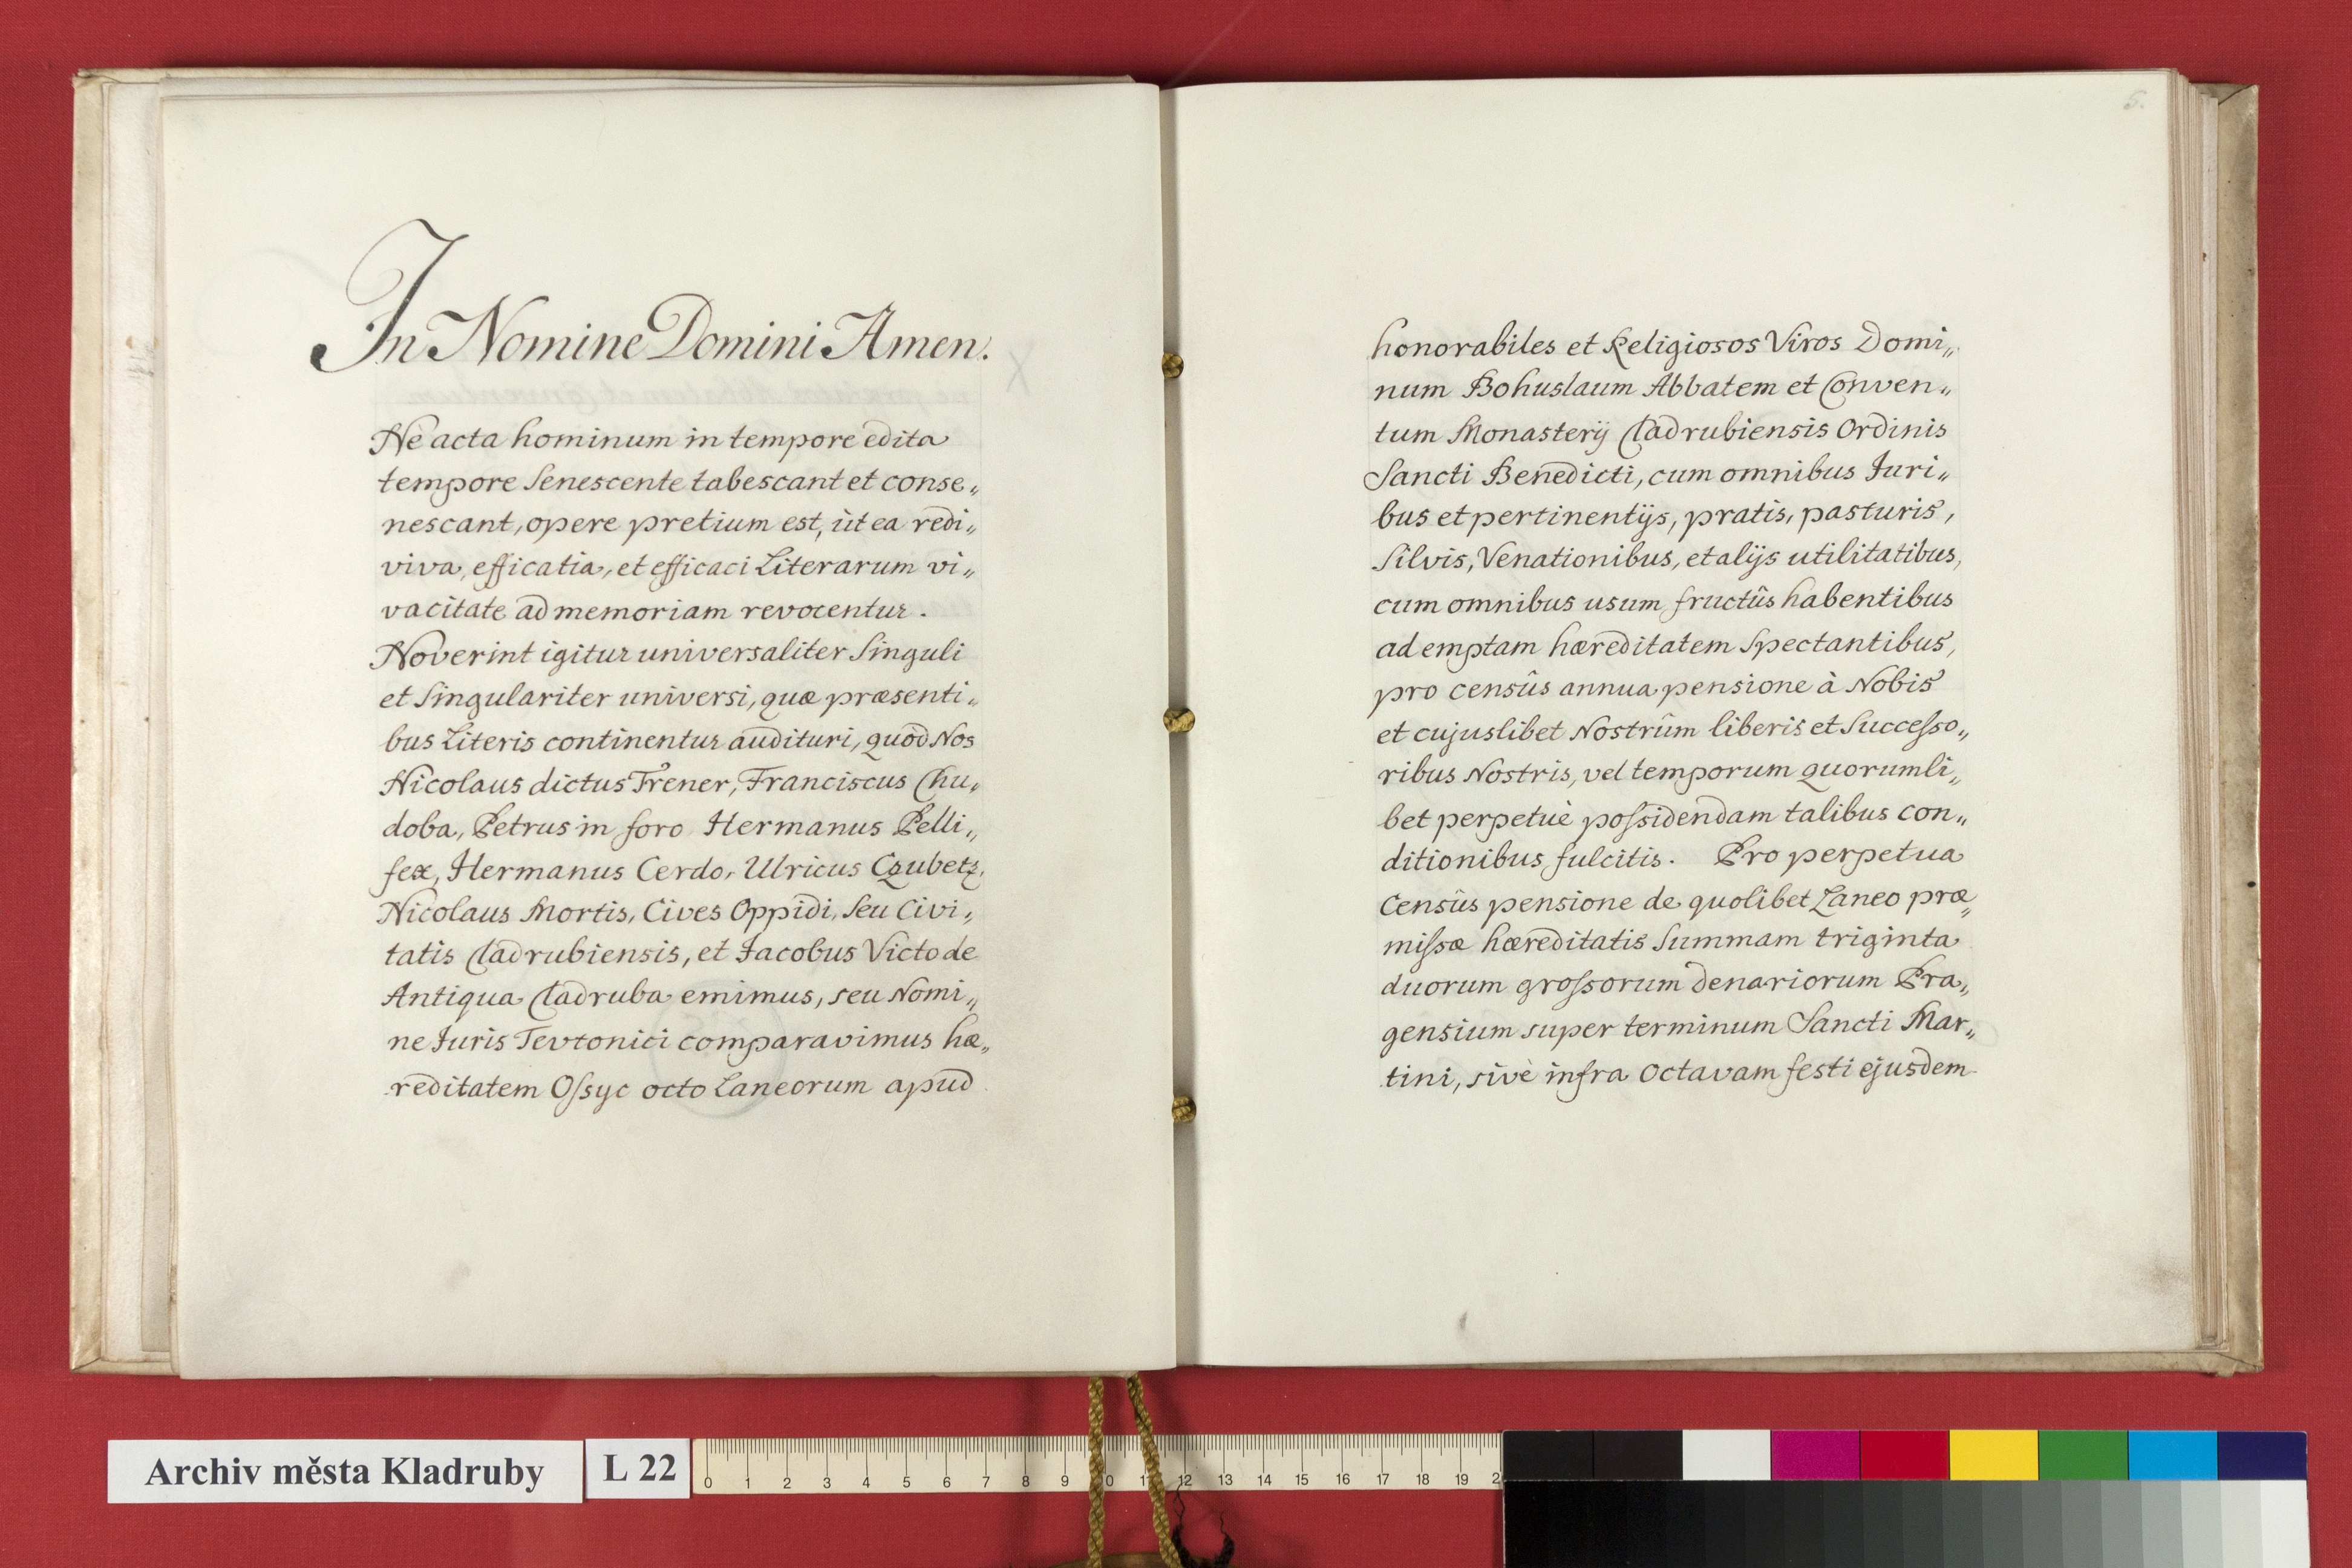 In Nomine Domini Amen.
Nè acta hominum in tempore edita
tempore senescente tabescant et conse„
nescant, opere pretium est, ùt ea redi„
viva, efficatia, et efficaci Literarum vi„
vacitate ad memoriam revocentur.
Noverint igitur universaliter singuli
et singulariter universi, quæ præsenti„
bus Literis continentur audituri, quòd Nos
Nicolaus dictus Trener, Franciscus Chu„
doba, Petrus in foro Hermanus Pelli„
fex, Hermanus Cerdo, Ulricus Czubetz,
Nicolaus Mortis, Cives Oppidi, seu Civi„
tatis Cladrubiensis, et Jacobus Victo de
Antiqua Cladruba emimus, seu Nomi„
ne Juris Tevtonici comparavimus hæ„
reditatem Oſsyc octo Laneorum apud
5.
honorabiles et Religiosos Viros Domi„
num Bohuslaum Abbatem et Conven„
tum Monasterij Cladrubiensis Ordinis
Sancti Benedicti, cum omnibus Juri„
bus et pertinentijs, pratis, pasturis,
Silvis, Venationibus, et alijs utilitatibus,
cum omnibus usum fructûs habentibus
ad emptam hæreditatem spectantibus,
pro censûs annua pensione à Nobis
et cujuslibet Nostrûm liberis et Succeſso„
ribus Nostris, vel temporum quorumli„
bet perpetuè poſsidendam talibus con„
ditionibus fulcitis. Pro perpetua
Censûs pensione de quolibet Laneo præ„
miſsæ hæreditatis summam triginta
duorum groſsorum denariorum Pra„
gensium super terminum Sancti Mar„
tini, sivè infra Octavam festi ejusdem
Archiv města Kladruby
L 22
0 1 2 3 4 5 6 7 8 9 10 11 12 13 14 15 16 17 18 19 2